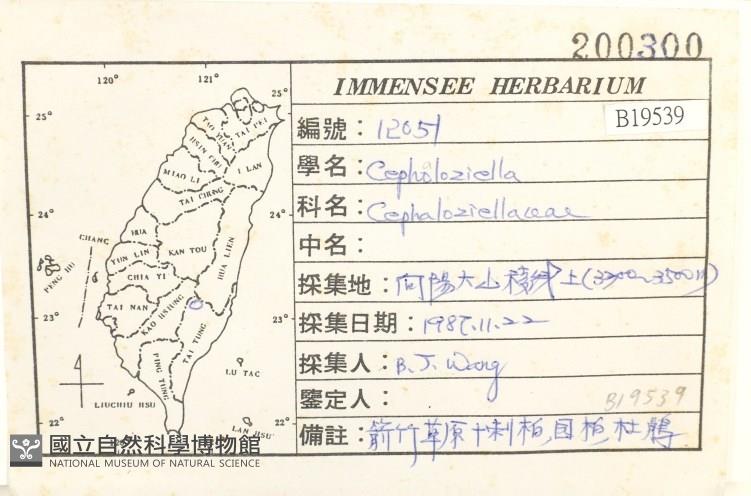 200300
IMMENSEE HERBARIUM
B19539
編號：12051
學名：Cephaloziella
科名：Cephaloziellaceae
中名：
採集地：向陽大山稜線上(3300~3500M)
採集日期：1987.11.22
採集人：B. J. Wang
鑒定人：
B19539
備註：箭竹草原+刺柏,圓柏,杜鵑
120°
121°
25°
25°
24°
24°
23°
23°
22°
22°
TAI PEI
TAO YUAN
HSIN CHU
I LAN
MIAO LI
TAI CHUNG
CHANG
HUA
NAN TOU
HUA LIEN
YUN LIN
PENG HU
CHIA YI
TAI NAN
KAO HSIUNG
TAI TUNG
PING TUNG
LU TAO
LIUCHIU HSU
LAN HSU
國立自然科學博物館
NATIONAL MUSEUM OF NATURAL SCIENCE